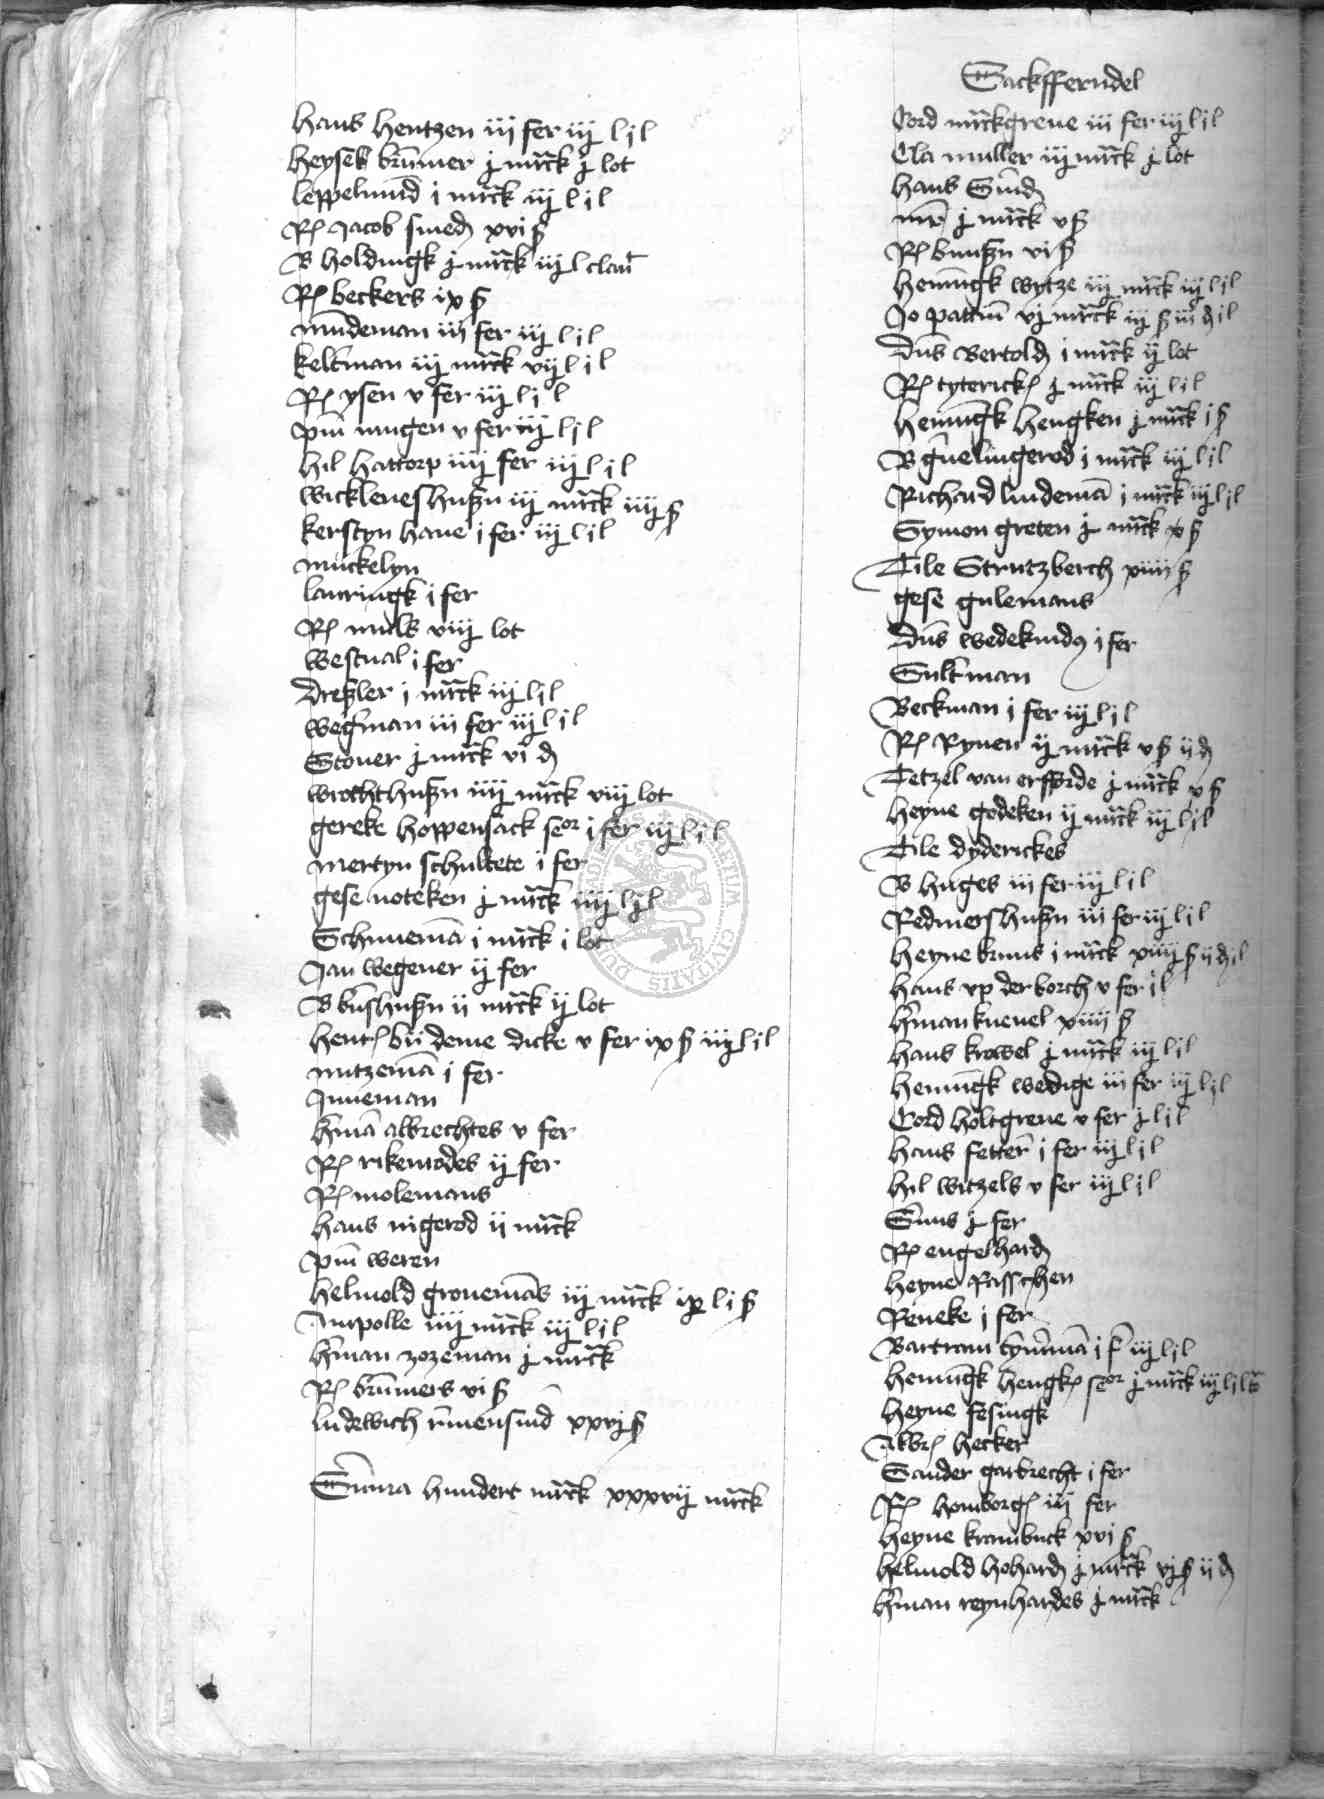 Hans Hentzen iii fer iij l j l
Heysek brummer j mrck j lot
leppelmud i mrck iij l j l
Rel Jacob smed xvi ß
B Holdingk j mrck iij l clant
Rel beckers ix ß
mundeman iii fer iij l j l
keltman iij mrck vij l j l
Rel ysen v fer iij l j l
pm mugen v fer iij l j l
hil hattorp iiij fer iij l j l
wickleueshußn iij mrck iiij ß
kerstyn haue i fer iij l j l
muckelyn
lauringk i fer
Rel muls viij lot
westual i fer
dreßler i mrck iij l j l
wegman iii fer iij l j l
Stouer j mrck vi d
wrochthußn iiij mrck viij lot
gereke hoppensack seor i fer iij l j l
mertyn schultete i fer
gese noteken j mrck iiij l j l
Schunema i mrck i lot
Jan wegener ij fer
B bunshußn ii mrck ij lot
Hent bii deme dicke v fer ix ß iij l j l
mutzema i fer
Junneman
Hma albrechtes v fer
Rel rikemodes ij fer
Rel molemans
Hans nigerod ij mrck
pm weren
Helmold gronemas iij mrck ix l i ß
Ampolle iiij mrck iij l j l
Hman zozeman j mrck
Rel brumers vi ß
ludewich xxvj ß
Summa hundert mrck xxxvij mrck
Sackfferndel
Cord mrckgreue iii fer iij l j l
Cla muller iij mrck j lot
Hans Smd
mr j mrck v ß
Rel bunßn vi ß
Hennigk wytze iij mrck iij l j l
Jo pattin vj mrck iij ß iii d j l
dns Bertold i mrck ij lot
Rel tyterick j mrck iij l j l
Hennigk Hengken j mrck i ß
B gnelingerod i mrck iij l j l
Richard lindema i mrck iij l j l
Symon greten j mrck x ß
Tile Strutzberch xiiij ß
gese gulemans
dns wedekind i fer
Sultman
Beckman i fer iij l j l
Rel Rynen ij mrck v ß ij d
Tetzel van erfforde j mrck v ß
Heyne godeken ij mrck iij l j l
Tile dyderickes
B huges iii fer iij l j l
Redmershußn iii fer iij l j l
Heyne bruns i mrck xiiij ß ij d j l
Hans vp der borch v fer i l
Hman kneuel xiiij ß
Hans krowel j mrck iij l j l
Hennigk wedige iii fer iij l j l
Cord holtgreue v fer j l j l
Hans fetter i fer iij l j l
hil witzels v fer iij l j l
Smus j fer
Rel engelhard
Heyne Rasschen
Reneke i fer
Bartram tymma i f iij l j l
Hennigk hengk seor j mrck iij l j l
Heyne fesingk
Albr hecker
Sander garbrecht i fer
Rel homborg iii fer
Heyne krambuck xvi ß
Helmold hohard j mrck vj ß ij d
Hman reynhardes j mrck